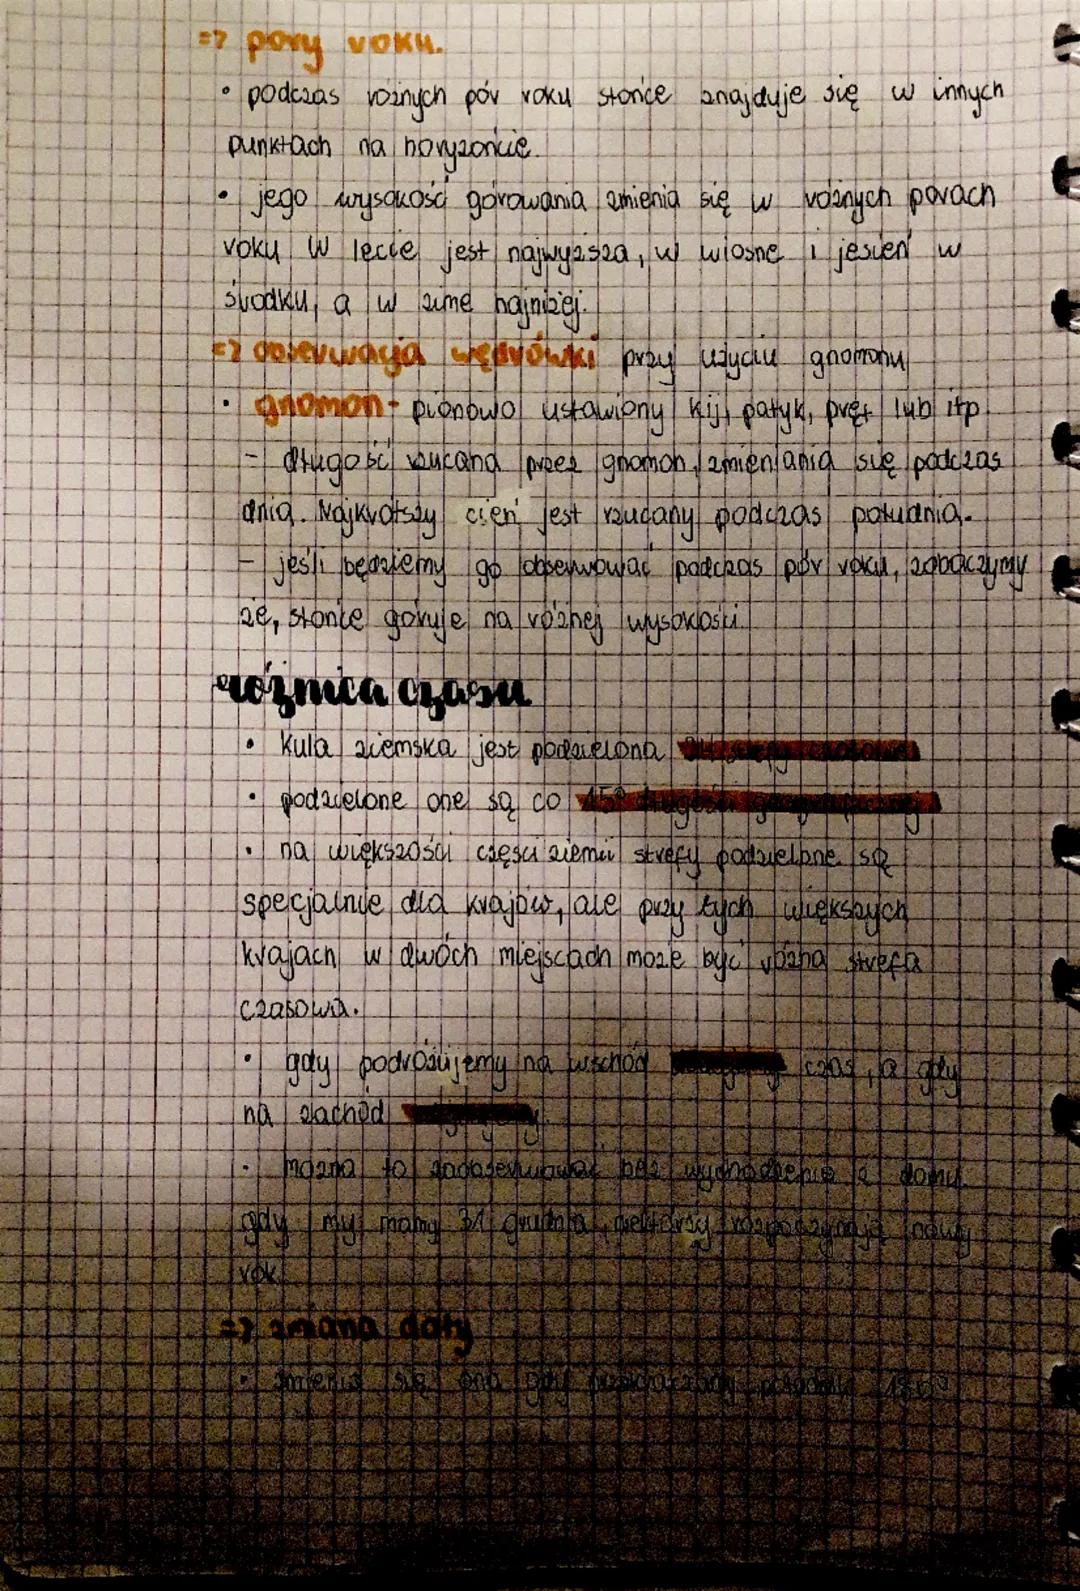 => pory roku.
• podczas róznych pór roku słońce znajduje się w innych
punktach na horyzoncie.
• jego wysokość górowania zmienia się w róznych porach
roku w lęcie jest najwyzsza, w wiosnę i jesień w
środku, a w zimę najniżej.
=> obserwacja wędrówki przy użyciu gnomonu
• gnomon - pionowo ustawiony kij, patyk, pręt lub itp.
- długość rzucana przez gnomon zmieniania się podczas
dnia. Najkrótszy cień jest rzucany podczas południa.
- jeśli będziemy go obserwować podczas pór roku, zobaczymy
że, słońce góruje na róznej wysokości.
róznica czasu
• kula ziemska jest podzielona 24 strefy czasowe
• podzielone one są co 15° długości geograficznej
• na większości części ziemii strefy podzielone są
specjalnie dla krajów, ale przy tych większych
krajach w dwóch miejscach może być rózna strefa
czasowa.
• gdy podróżujemy na wschód czas, a gdy
na zachód
• mozna to zaobserwować bez wychodzenia z domu.
gdy my mamy 31 grudnia, niektórzy rozpoczynają nowy
rok.
=> zmiana daty
• zmienia się ona gdy przekraczamy południk 180°